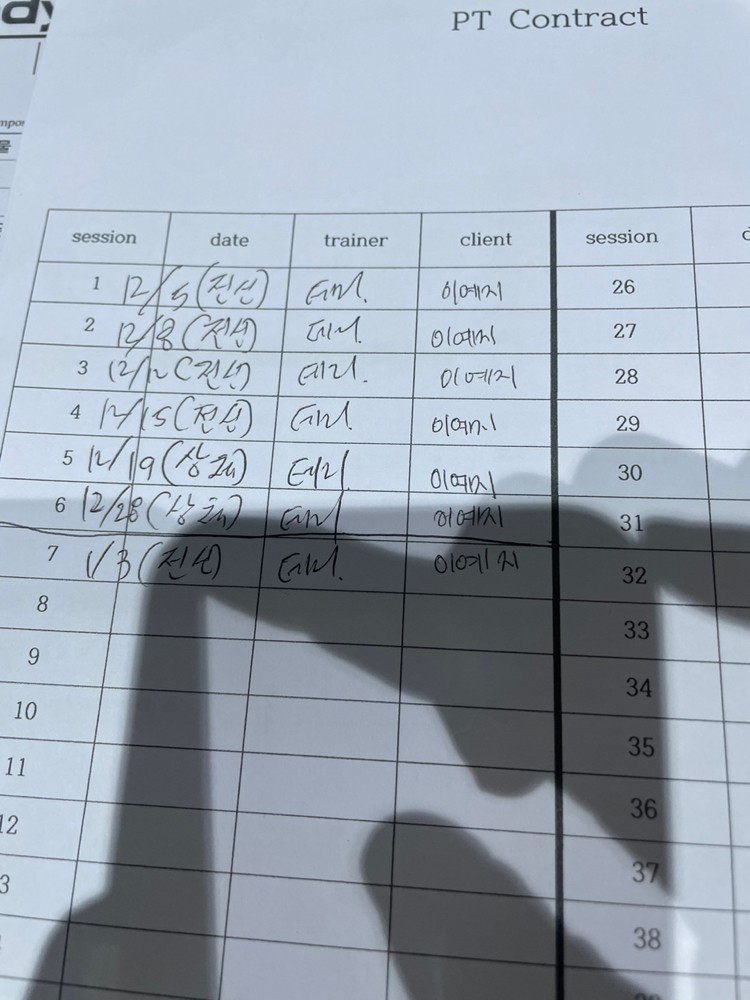 dy
PT Contract
물
session date trainer client session
1 12/5 (전신) 테리. 이예지 26
2 12/8 (전신) 테리. 이예지 27
3 12/12 (전신) 테리. 이예지 28
4 12/15 (전신) 테리. 이예지 29
5 12/19 (상체) 테리 이예지 30
6 12/28 (상체) 테리 이예지 31
7 1/3 (전신) 테리. 이예지 32
8 33
9 34
10 35
11 36
12 37
3 38